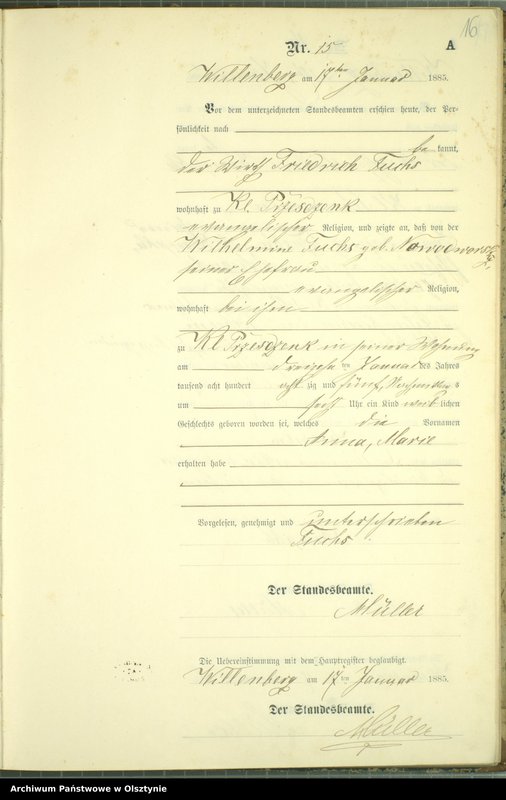 16
Nr. 15 A
Willenberg am 17ten Januar 1885.
Vor dem unterzeichneten Standesbeamten erschien heute, der Per-
sönlichkeit nach
be kannt,
der Wirth Friedrich Fuchs
wohnhaft zu Kl. Przesdzenk
evangelischer Religion, und zeigte an, daß von der
Wilhelmine Fuchs geb.
seiner Ehefrau
evangelischer Religion,
wohnhaft bei ihm
zu Kl Przesdzenk in seiner Wohnung
am ten Januar des Jahres
tausend acht hundert acht zig und fünf, Nachmittags
um sechs Uhr ein Kind weib lichen
Geschlechts geboren worden sei, welches die Vornamen
Anna, Marie
erhalten habe
Vorgelesen, genehmigt und unterschrieben
Fuchs
Der Standesbeamte.
Müller
Die Uebereinstimmung mit dem Hauptregister beglaubigt.
Willenberg am 17ten Januar 1885.
Der Standesbeamte.
Müller
Archiwum Państwowe w Olsztynie